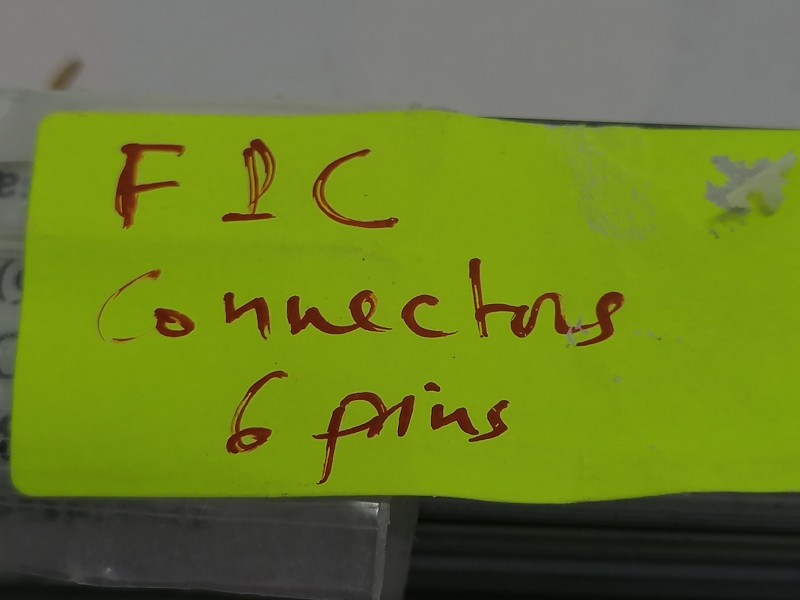 FPC
Connectors
6 pins